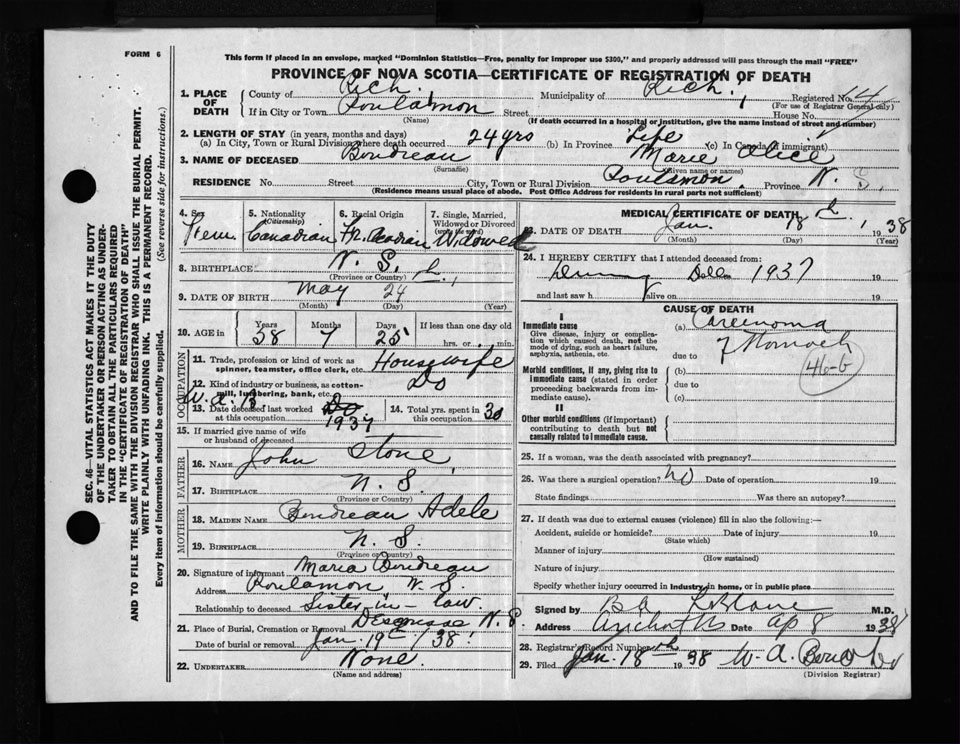 FORM 6
This form if placed in an envelope, marked "Dominion Statistics—Free, penalty for improper use $300," and properly addressed will pass through the mail "FREE"
PROVINCE OF NOVA SCOTIA—CERTIFICATE OF REGISTRATION OF DEATH
SEC. 46—VITAL STATISTICS ACT MAKES IT THE DUTY
OF THE UNDERTAKER OR PERSON ACTING AS UNDER-
TAKER TO OBTAIN ALL THE PARTICULARS REQUIRED
IN THE "CERTIFICATE OF REGISTRATION OF DEATH"
AND TO FILE THE SAME WITH THE DIVISION REGISTRAR WHO SHALL ISSUE THE BURIAL PERMIT.
WRITE PLAINLY WITH UNFADING INK. THIS IS A PERMANENT RECORD.
Every item of information should be carefully supplied. (See reverse side for instructions.)
1. PLACE OF DEATH
County of Rich. Municipality of Rich. Registered No. 4
(For use of Registrar General only)
If in City or Town Poulamon Street House No.
(Name) (If death occurred in a hospital or institution, give the name instead of street and number)
2. LENGTH OF STAY (in years, months and days)
(a) In City, Town or Rural Division where death occurred 24 yrs (b) In Province Life (c) In Canada (if immigrant)
3. NAME OF DECEASED Boudreau Marie Alice
(Surname) (Given name or names)
RESIDENCE No. Street City, Town or Rural Division Poulamon. Province N. S.
(Residence means usual place of abode. Post Office Address for residents in rural parts not sufficient)
4. Sex Fem.
5. Nationality (Citizenship) Canadian
6. Racial Origin Fr. Acadian
7. Single, Married, Widowed or Divorced (write the word) Widowed
8. BIRTHPLACE N. S.
(Province or Country)
9. DATE OF BIRTH May 24
(Month) (Day) (Year)
10. AGE in Years 58 Months 7 Days 25 If less than one day old
hrs. or min.
OCCUPATION
11. Trade, profession or kind of work as spinner, teamster, office clerk, etc. Housewife
12. Kind of industry or business, as cotton-mill, lumbering, bank, etc. Do
W. A. B
13. Date deceased last worked at this occupation Do 1937
14. Total yrs. spent in this occupation 30
15. If married give name of wife or husband of deceased
FATHER
16. NAME John Stone
17. BIRTHPLACE N. S.
(Province or Country)
MOTHER
18. MAIDEN NAME Boudreau Adele
19. BIRTHPLACE N. S.
(Province or Country)
20. Signature of informant Maria Boudreau
Address Poulamon N. S.
Relationship to deceased Sister-in-law
21. Place of Burial, Cremation or Removal N. S.
Date of burial or removal Jan. 19th / 38.
22. UNDERTAKER None.
(Name and address)
MEDICAL CERTIFICATE OF DEATH
23. DATE OF DEATH Jan. 18th 1938
(Month) (Day) (Year)
24. I HEREBY CERTIFY that I attended deceased from:
During Dec 1937 19
and last saw h alive on 19
CAUSE OF DEATH
I
Immediate cause
Give disease, injury or complication which caused death, not the mode of dying, such as heart failure, asphyxia, asthenia, etc.
(a) Carcinoma
due to of Stomach
46-b
Morbid conditions, if any, giving rise to immediate cause (stated in order proceeding backwards from immediate cause).
(b)
due to
(c)
II
Other morbid conditions (if important) contributing to death but not causally related to immediate cause.
25. If a woman, was the death associated with pregnancy?
26. Was there a surgical operation? No Date of operation 19
State findings Was there an autopsy?
27. If death was due to external causes (violence) fill in also the following:—
Accident, suicide or homicide? Date of injury 19
(State which)
Manner of injury
(How sustained)
Nature of injury
Specify whether injury occurred in Industry, in home, or in public place
Signed by B A LeBlanc M.D.
Address Arichat NS Date Ap 8 1938
28. Registrar's Record Number
29. Filed Jan. 18th 1938 W. A.
(Division Registrar)